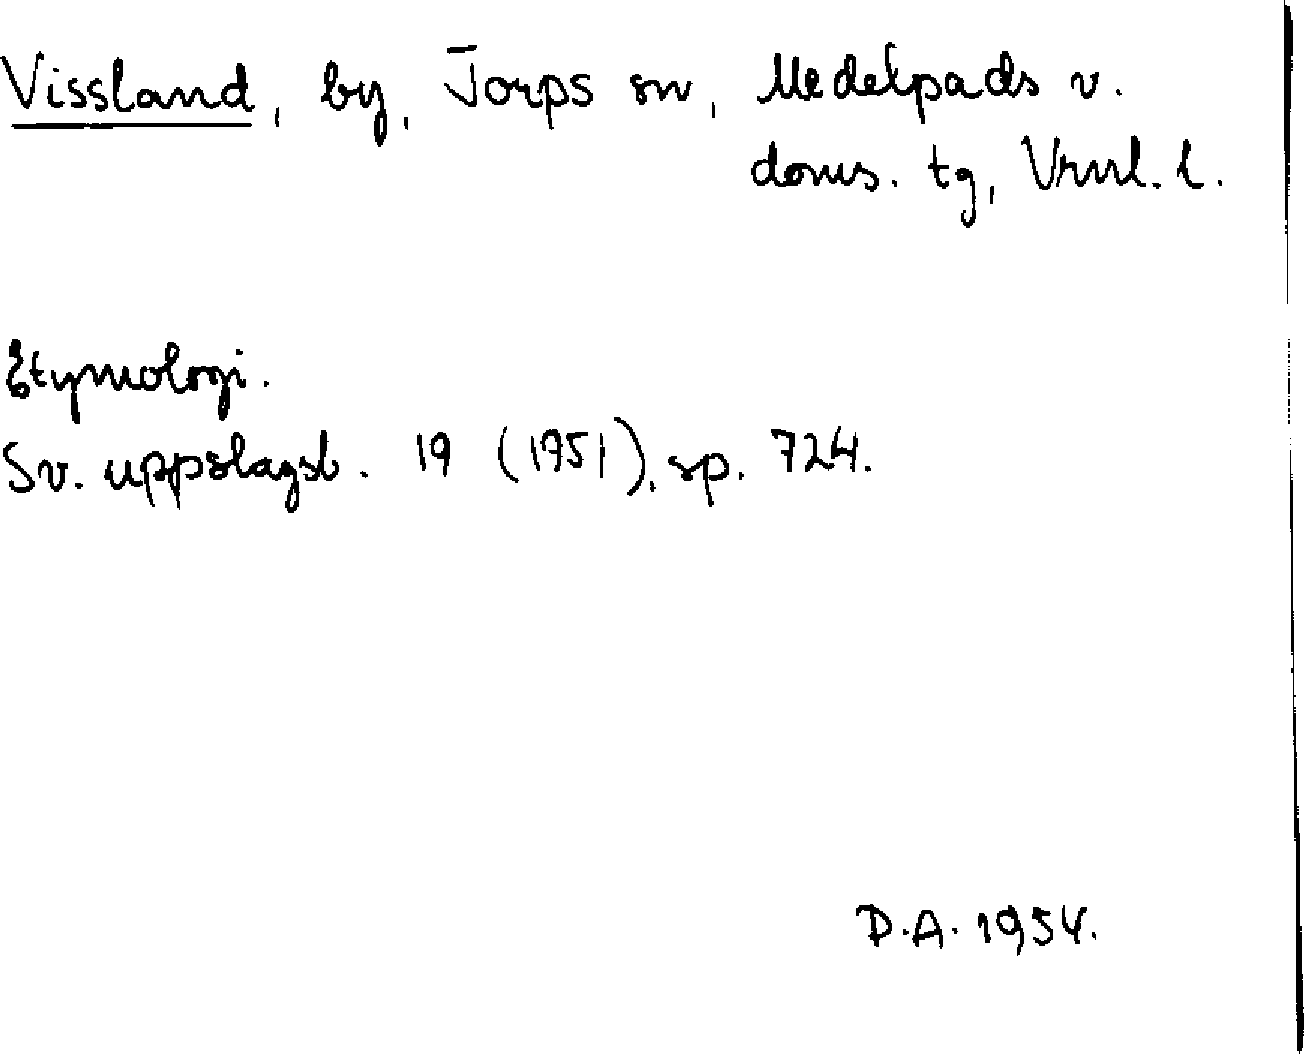 Vissland, by, Torps sn, Medelpads v.
doms. tg, Vrnl. l.
Etymologi.
Sv. uppslagsb. 19 (1951), sp. 724.
D.A. 1954.